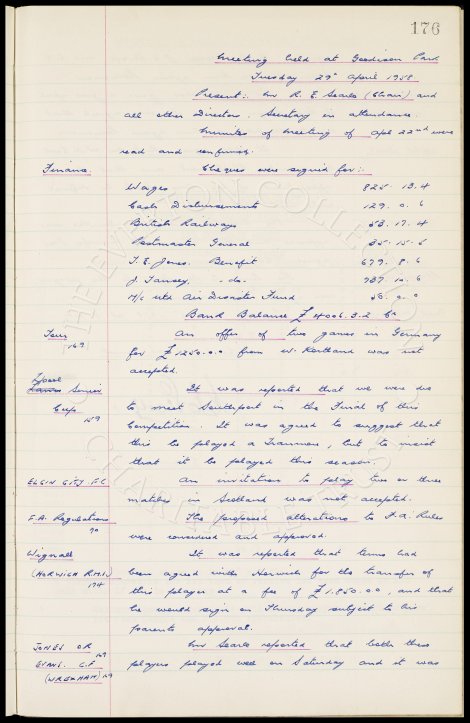 176
Meeting held at Goodison Park
Tuesday 29th April 1958
Present: Mr R. E. Searle (Chair) and
all other Directors. Secretary in attendance.
Minutes of Meeting of Apl 22nd were
read and confirmed.
Finance. Cheques were signed for:
Wages 825. 13. 4
Cash Disbursements 129. 0. 6
British Railways 53. 17. 4
Postmaster General 35. 15. 6
T. E. Jones. Benefit 679. 8. 6
J. Tansey. - do - 737. 10. 6
M/c Utd Air Disaster Fund 0. 0
Bank Balance £ 4006. 3. 2 Cr
Tour An offer of two games in Germany
149 for £1250.0.0 from W. was not
accepted.
L'pool
Senior It was reported that we were due
Cup to meet Southport in the Final of this
159 Competition. It was agreed to suggest that
this be played a Tranmere, but to insist
that it be played this season.
ELGIN CITY F.C An invitation to play two or three
matches in Scotland was not accepted.
F.A. Regulations The proposed alterations to F.A. Rules
90 were considered and approved.
Wignall It was reported that terms had
(HORWICH R.M.I.) been agreed with Horwich for the transfer of
174 this player at a fee of £1,850.0.0, and that
he would sign on Thursday subject to his
parents approval.
JONES O R 169 Mr Searle reported that both these
EVANS. G. F players played well on Saturday and it was
(WREXHAM) 169
THE EVERTON COLLECTION
CHARITABLE TRUST